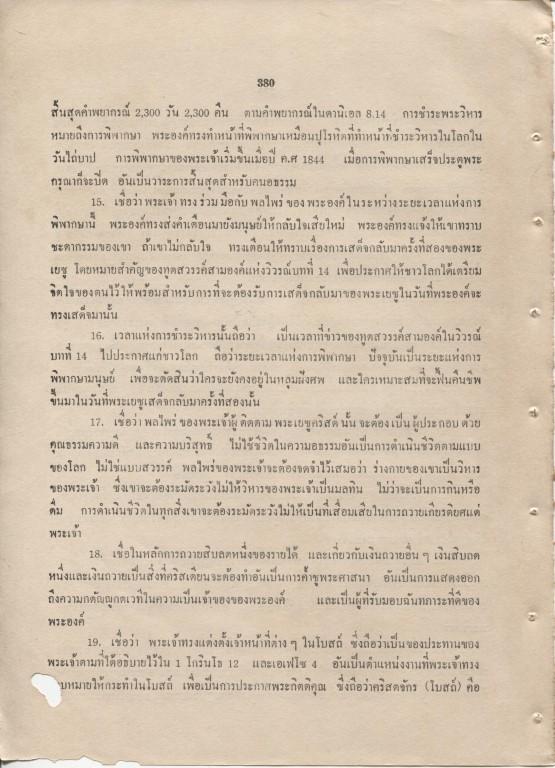 380
สั้นสุดคำพยากรณ์ 2,300 วัน 2,300 คืน ตามคำพยากรณ์ในดานิเอล 8.14 การชำระพระวิหาร
หมายถึงการพิพากษา พระองค์ทรงทำหน้าที่พิพากษาเหมือนปุโรหิตที่ทำหน้าที่ชำระวิหารในโลกใน
วันไถ่บาป การพิพากษาของพระเจ้าเริ่มขึ้นเมื่อปี ค.ศ 1844 เมื่อการพิพากษาเสร็จประตูพระ
กรุณาก็จะปิด อันเป็นวาระการสิ้นสุดสำหรับคนอธรรม
15. เชื่อว่า พระเจ้า ทรง ร่วม มือกับ พลไพร่ ของ พระองค์ ในระหว่างระยะเวลาแห่งการ
พิพากษานี้ พระองค์ทรงส่งคำเตือนมายังมนุษย์ให้กลับใจเสียใหม่ พระองค์ทรงแจ้งให้เขาทราบ
ชะตากรรมของเขา ถ้าเขาไม่กลับใจ ทรงเตือนให้ทราบเรื่องการเสด็จกลับมาครั้งที่สองของพระ
เยซู โดยหมายสำคัญของทูตสวรรค์สามองค์แห่งวิวรณ์บทที่ 14 เพื่อประกาศให้ชาวโลกได้เตรียม
จิตใจของตนไว้ให้พร้อมสำหรับการที่จะต้องรับการเสด็จกลับมาของพระเยซูในวันที่พระองค์จะ
ทรงเสด็จมานั้น
16. เวลาแห่งการชำระวิหารนั้นถือว่า เป็นเวลาที่ข่าวของทูตสวรรค์สามองค์ในวิวรณ์
บทที่ 14 ไปประกาศแก่ชาวโลก ถือว่าระยะเวลาแห่งการพิพากษา ปัจจุบันเป็นระยะแห่งการ
พิพากษามนุษย์ เพื่อจะตัดสินว่าใครจะยังคงอยู่ในหลุมฝังศพ และใครเหมาะสมที่จะฟื้นคืนชีพ
ขึ้นมาในวันที่พระเยซูเสด็จกลับมาครั้งที่สองนั้น
17. เชื่อว่า พลไพร่ ของ พระเจ้าผู้ ติดตาม พระเยซูคริสต์ นั้น จะต้อง เป็น ผู้ประกอบ ด้วย
คุณธรรมความดี และความบริสุทธิ์ ไม่ใช้ชีวิตในความอธรรมอันเป็นการดำเนินชีวิตตามแบบ
ของโลก ไม่ใช่แบบสวรรค์ พลไพร่ของพระเจ้าจะต้องจดจำไว้เสมอว่า ร่างกายของเขาเป็นวิหาร
ของพระเจ้า ซึ่งเขาจะต้องระมัดระวังไม่ให้วิหารของพระเจ้าเป็นมลทิน ไม่ว่าจะเป็นการกินหรือ
ดื่ม การดำเนินชีวิตในทุกสิ่งเขาจะต้องระมัดระวังไม่ให้เป็นที่เสื่อมเสียในการถวายเกียรติยศแด่
พระเจ้า
18. เชื่อในหลักการถวายสิบลดหนึ่งของรายได้ และเกี่ยวกับเงินถวายอื่น ๆ เงินสิบลด
หนึ่งและเงินถวายเป็นสิ่งที่คริสเตียนจะต้องทำอันเป็นการค้ำชูพระศาสนา อันเป็นการแสดงออก
ถึงความกตัญญูกตเวทีในความเป็นเจ้าของของพระองค์ และเป็นผู้ที่รับมอบฉันทภาระที่ดีของ
พระองค์
19. เชื่อว่า พระเจ้าทรงแต่งตั้งเจ้าหน้าที่ต่าง ๆ ในโบสถ์ ซึ่งถือว่าเป็นของประทานของ
พระเจ้าตามที่ได้อธิบายไว้ใน 1 โกรินโธ 12 และเอเฟโซ 4 อันเป็นตำแหน่งงานที่พระเจ้าทรง
บหมายให้กระทำในโบสถ์ เพื่อเป็นการประกาศพระกิตติคุณ ซึ่งถือว่าคริสตจักร (โบสถ์) คือ